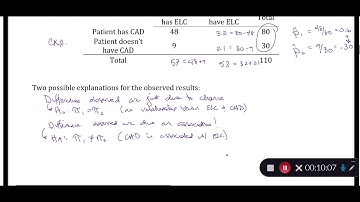 has ELC have ELC Total
Patient has CAD 48 32 = 80-48 80
Patient doesn't have CAD 9 21 = 30-9 30
Total 57 = 48+9 53 = 32+21 110
p̂₁ = 48/80 = 0.6
p̂₂ = 9/30 = .30
Two possible explanations for the observed results:
Differences observed are just due to chance
H₀: π₁ = π₂ (no relationship btwn ELC + CAD)
Difference observed are due an association!
HA: π₁ ≠ π₂ (CAD is associated w/ ELC)
00:10:07